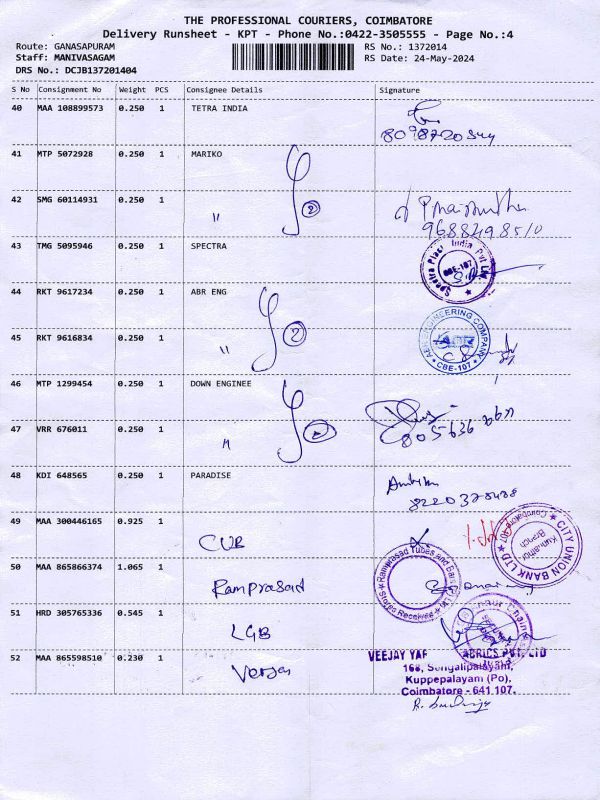 THE PROFESSIONAL COURIERS, COIMBATORE
Delivery Runsheet - KPT - Phone No.:0422-3505555 - Page No.:4
Route: GANASAPURAM RS No.: 1372014
Staff: MANIVASAGAM RS Date: 24-May-2024
DRS No.: DCJB137201404
S No Consignment No Weight PCS Consignee Details Signature
40 MAA 108899573 0.250 1 TETRA INDIA
41 MTP 5072928 0.250 1 MARIKO
42 SMG 60114931 0.250 1
" 2
9688498510
43 TMG 5095946 0.250 1 SPECTRA
Spectra Plast India Pvt Ltd
CBE-107
44 RKT 9617234 0.250 1 ABR ENG
2
45 RKT 9616834 0.250 1
"
ABR ENGINEERING COMPANY
ABR
CBE-107
46 MTP 1299454 0.250 1 DOWN ENGINEE
47 VRR 676011 0.250 1
" 2
48 KDI 648565 0.250 1 PARADISE
49 MAA 300446165 0.925 1 CUB
CITY UNION BANK LTD
Coimbatore
Branch
50 MAA 865866374 1.065 1 Ramprasad
Ramprasad Tubes and
Stores Received
51 HRD 305765336 0.545 1 LGB
52 MAA 865598510 0.230 1
VEEJAY FABRICS PVT. LTD
168, Sengalipalayam,
Kuppepalayam (Po),
Coimbatore - 641 107.